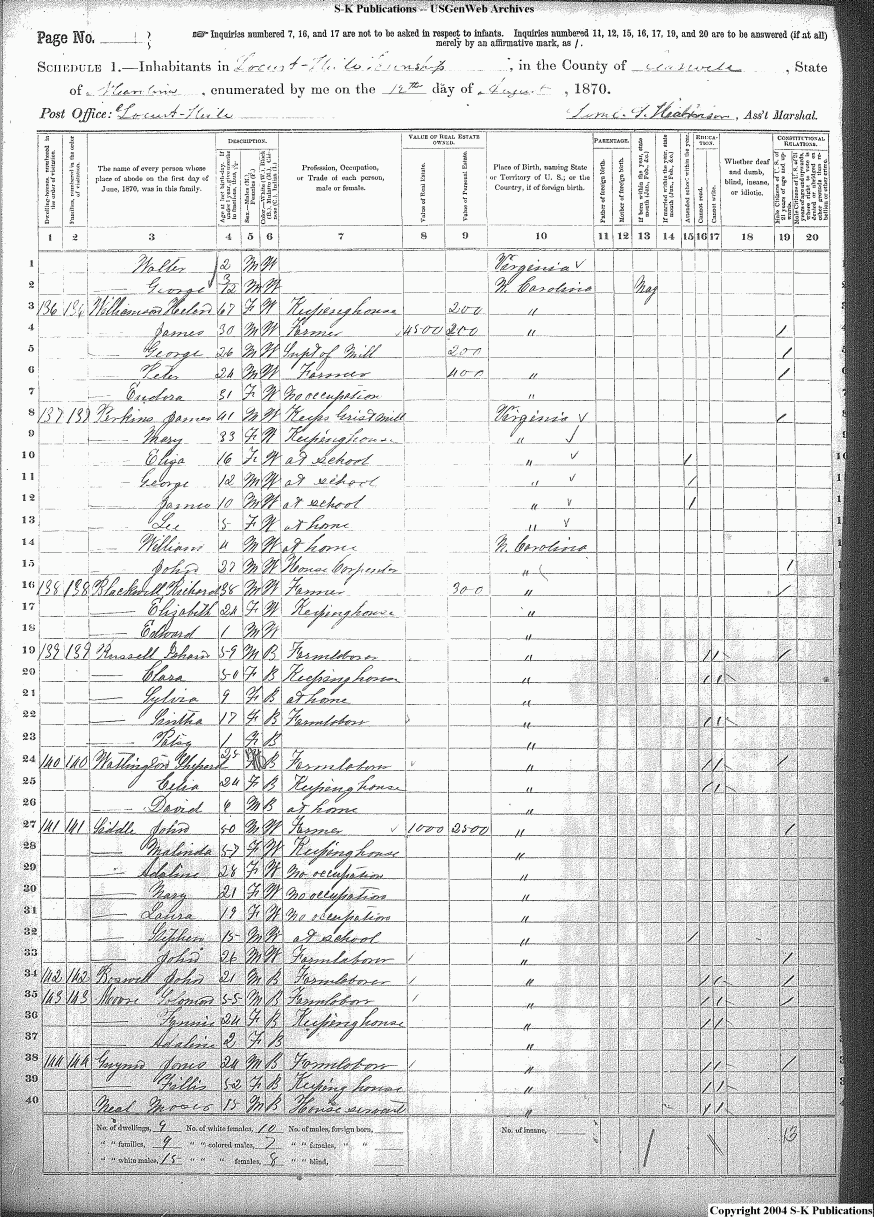 S-K Publications -- USGenWeb Archives
Page No.
☞ Inquiries numbered 7, 16, and 17 are not to be asked in respect to infants. Inquiries numbered 11, 12, 15, 16, 17, 19, and 20 are to be answered (if at all)
merely by an affirmative mark, as /.
SCHEDULE 1.—Inhabitants in Locust-Hill Township, in the County of Caswell, State
of N Carolina, enumerated by me on the 12th day of August, 1870.
Post Office: Locust-Hill , Ass't Marshal.
DESCRIPTION. VALUE OF REAL ESTATE OWNED. PARENTAGE. EDUCATION. CONSTITUTIONAL RELATIONS.
Dwelling-houses, numbered in the order of visitation.
Families, numbered in the order of visitation.
The name of every person whose place of abode on the first day of June, 1870, was in this family.
Profession, Occupation, or Trade of each person, male or female.
Value of Real Estate.
Value of Personal Estate.
Place of Birth, naming State or Territory of U. S.; or the Country, if of foreign birth.
Father of foreign birth.
Mother of foreign birth.
If born within the year, state month (Jan., Feb., &c.)
If married within the year, state month (Jan., Feb., &c.)
Attended school within the year.
Cannot read.
Cannot write.
Whether deaf and dumb, blind, insane, or idiotic.
1 2 3 4 5 6 7 8 9 10 11 12 13 14 15 16 17 18 19 20
1 — Walter 2 M W Virginia
2 — George 3/12 M W N. Carolina May
3 136 136 Williamson 67 F W Keeping house 200 "
4 — James 30 M W Farmer 4500 200 " /
5 — George 26 M W Supt of Mill 200 /
6 — Peter 24 M W Farmer 400 " /
7 — Eudora 31 F W No occupation "
8 137 137 Perkins James 41 M W Keeps Grist Mill Virginia /
9 — Mary 33 F W Keeping house "
10 — Eliza 16 F W at school " /
11 — George 12 M W at school " /
12 — James 10 M W at school " /
13 — Lee 5 F W at home "
14 — William 4 M W at home N. Carolina
15 — John 27 M W House Carpenter " /
16 138 138 Blackwell Richard 38 M W Farmer 300 " /
17 — Elizabeth 24 F W Keeping house "
18 — Edward 1 M W "
19 139 139 Russell 59 M B Farm laborer " / / /
20 — Clara 50 F B Keeping house " / /
21 — Sylvia 9 F B at home "
22 — 17 F B Farm labor " / /
23 — Patsy 1 F B "
24 140 140 Watlington Shepard 25 B Farm labor " / / /
25 — Celia 24 F B Keeping house " / /
26 — David 6 M B at home "
27 141 141 John 50 M W Farmer 1000 2500 " /
28 — Malinda 57 F W Keeping house "
29 — Adaline 28 F W No occupation "
30 — Mary 21 F W No occupation "
31 — Laura 19 F W No occupation "
32 — Stephen 15 M W at school " /
33 — John 26 M W Farm laborer " /
34 142 142 Boswell John 21 M B Farm laborer " / / /
35 143 143 Moore Solomon 55 M B Farm labor " / / /
36 — 24 F B Keeping house " / /
37 — Adaline 2 F B "
38 144 144 Gwynn 24 M B Farm labor " / / /
39 — Fillis 52 F B Keeping house " / /
40 Neal Moses 15 M B House servant " / /
No. of dwellings, 9 No. of white females, 10 No. of males, foreign born, No. of insane,
" " families, 9 " " colored males, 7 " " females, " "
" " white males, 15 " " " females, 8 " " blind,
13
Copyright 2004 S-K Publications